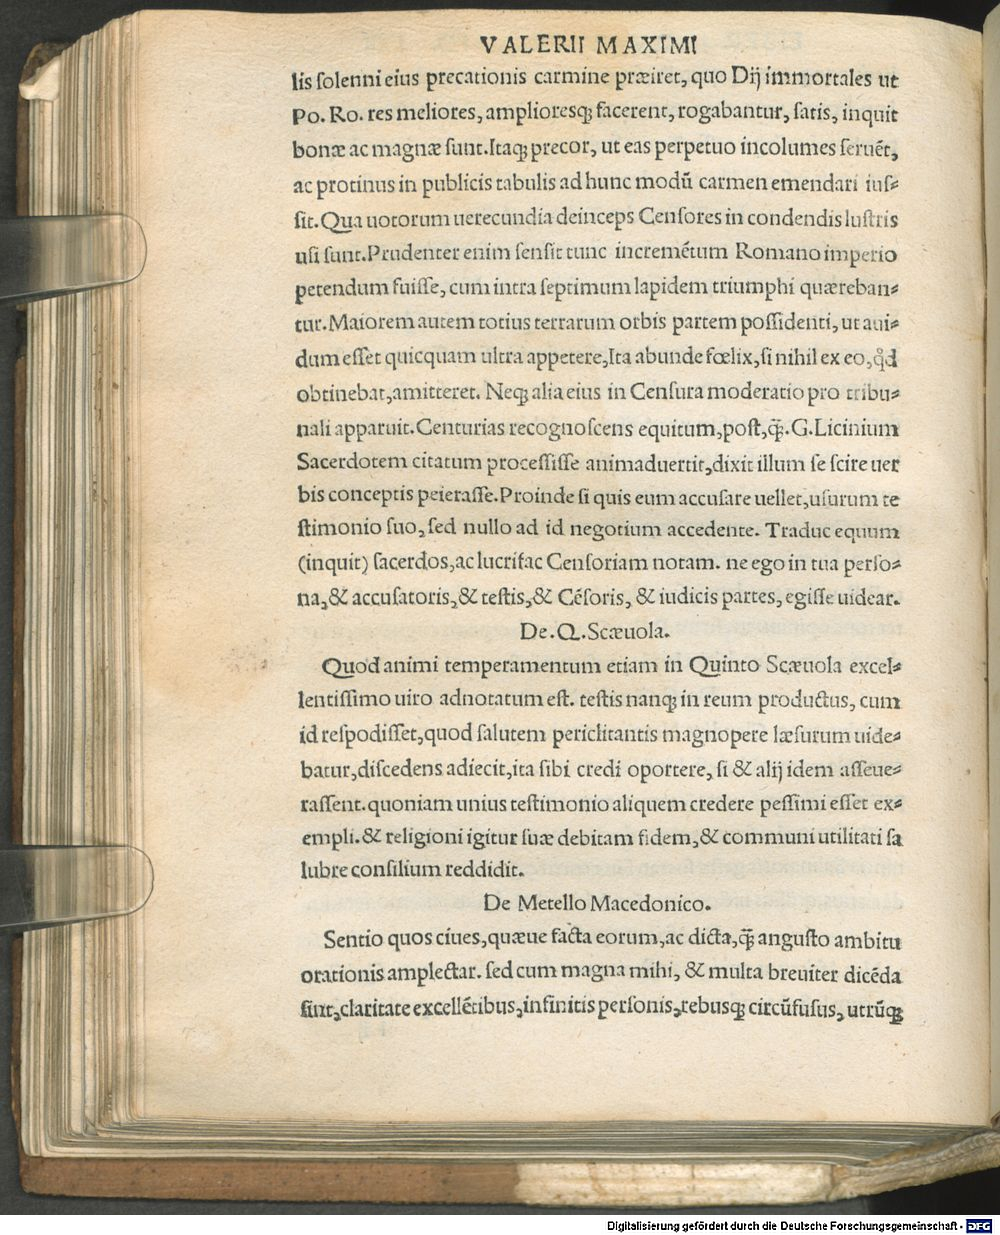 VALERII MAXIMI
lis solenni eius precationis carmine præiret, quo Dij immortales ut
Po. Ro. res meliores, amplioresq; facerent, rogabantur, satis, inquit
bonæ ac magnæ sunt. Itaq; precor, ut eas perpetuo incolumes seruẽt,
ac protinus in publicis tabulis ad hunc modũ carmen emendari ius⸗
sit. Qua uotorum uerecundia deinceps Censores in condendis lustris
usi sunt. Prudenter enim sensit tunc incremẽtum Romano imperio
petendum fuisse, cum intra septimum lapidem triumphi quæreban⸗
tur. Maiorem autem totius terrarum orbis partem possidenti, ut aui⸗
dum esset quicquam ultra appetere, Ita abunde fœlix, si nihil ex eo, qd̛
obtinebat, amitteret. Neq; alia eius in Censura moderatio pro tribu⸗
nali apparuit. Centurias recognoscens equitum, post, q̃. G. Licinium
Sacerdotem citatum processisse animaduertit, dixit illum se scire uer
bis conceptis peierasse. Proinde si quis eum accusare uellet, usurum te
stimonio suo, sed nullo ad id negotium accedente. Traduc equum
(inquit) sacerdos, ac lucrifac Censoriam notam. ne ego in tua perso⸗
na, & accusatoris, & testis, & Cẽsoris, & iudicis partes, egisse uidear.
De. Q. Scæuola.
Quod animi temperamentum etiam in Quinto Scæuola excel⸗
lentissimo uiro adnotatum est. testis nanq; in reum productus, cum
id respodisset, quod salutem periclitantis magnopere læsurum uide⸗
batur, discedens adiecit, ita sibi credi oportere, si & alij idem asseue⸗
rassent. quoniam unius testimonio aliquem credere pessimi esset ex⸗
empli. & religioni igitur suæ debitam fidem, & communi utilitati sa
lubre consilium reddidit.
De Metello Macedonico.
Sentio quos ciues, quæue facta eorum, ac dicta, q̃ angusto ambitu
orationis amplectar. sed cum magna mihi, & multa breuiter dicẽda
sint, claritate excellẽtibus, infinitis personis, rebusq; circũfusus, utrũq;
Digitalisierung gefördert durch die Deutsche Forschungsgemeinschaft - DFG